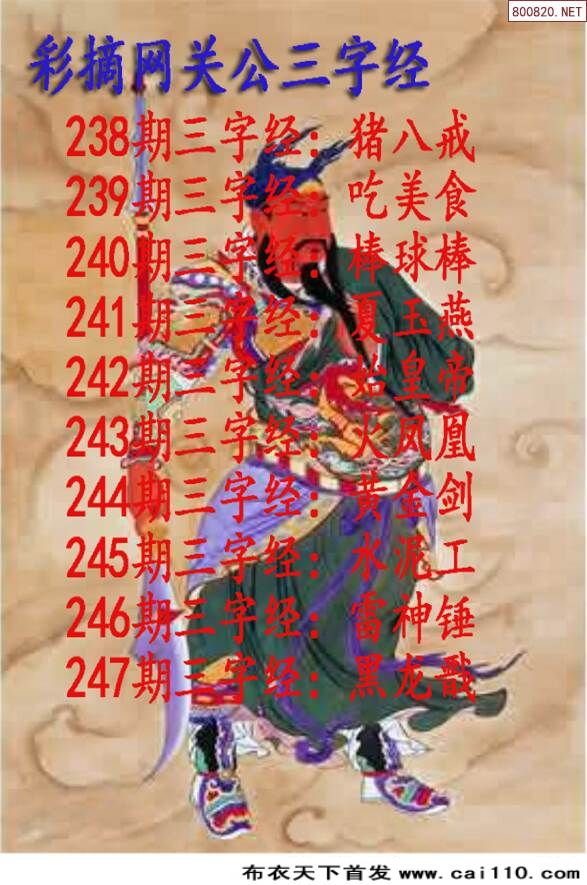 800820.NET
彩摘网关公三字经
238期三字经：猪八戒
239期三字经：吃美食
240期三字经：棒球棒
241期三字经：夏玉燕
242期三字经：始皇帝
243期三字经：火凤凰
244期三字经：黄金剑
245期三字经：水泥工
246期三字经：雷神锤
247期三字经：黑龙戬
布衣天下首发 www.cai110.com